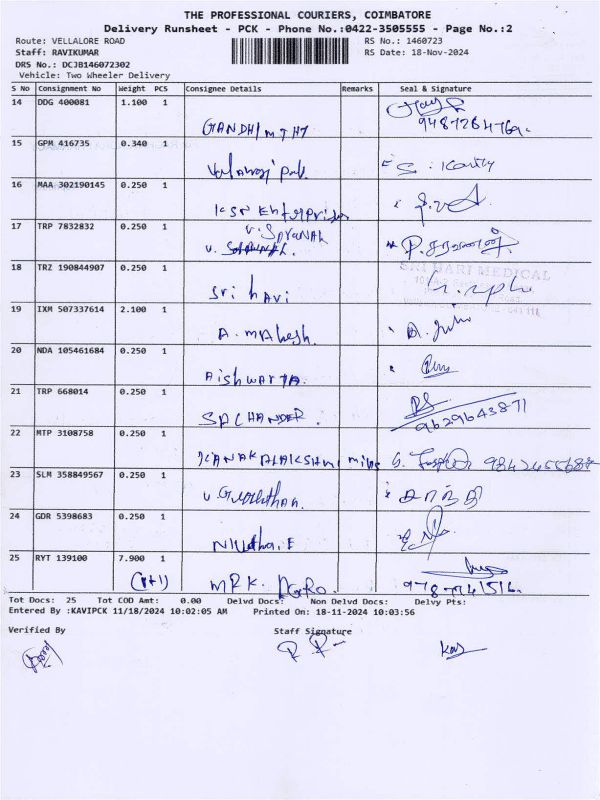 THE PROFESSIONAL COURIERS, COIMBATORE
Delivery Runsheet - PCK - Phone No.:0422-3505555 - Page No.:2
Route: VELLALORE ROAD RS No.: 1460723
Staff: RAVIKUMAR RS Date: 18-Nov-2024
DRS No.: DCJB146072302
Vehicle: Two Wheeler Delivery
S No Consignment No Weight PCS Consignee Details Remarks Seal & Signature
14 DDG 400081 1.100 1
GANDHIMTHI
15 GPM 416735 0.340 1
16 MAA 302190145 0.250 1
KSN Enterprises
17 TRP 7832832 0.250 1 V. SaravanaN
V. P. சரவணன்
18 TRZ 190844907 0.250 1 SRI HARI MEDICAL
Sri hari
641 111
19 IXM 507337614 2.100 1
A. MAhesh.
20 NDA 105461684 0.250 1
Aishwarya.
21 TRP 668014 0.250 1
SACHANDER. 9629643871
22 MTP 3108758 0.250 1
KANAKALAKSHMI
23 SLM 358849567 0.250 1
சாந்தி
24 GDR 5398683 0.250 1
25 RYT 139100 7.900 1
(1+1) MRK. AGRO.
Tot Docs: 25 Tot COD Amt: 0.00 Delvd Docs: Non Delvd Docs: Delvy Pts:
Entered By :KAVIPCK 11/18/2024 10:02:05 AM Printed On: 18-11-2024 10:03:56
Verified By Staff Signature